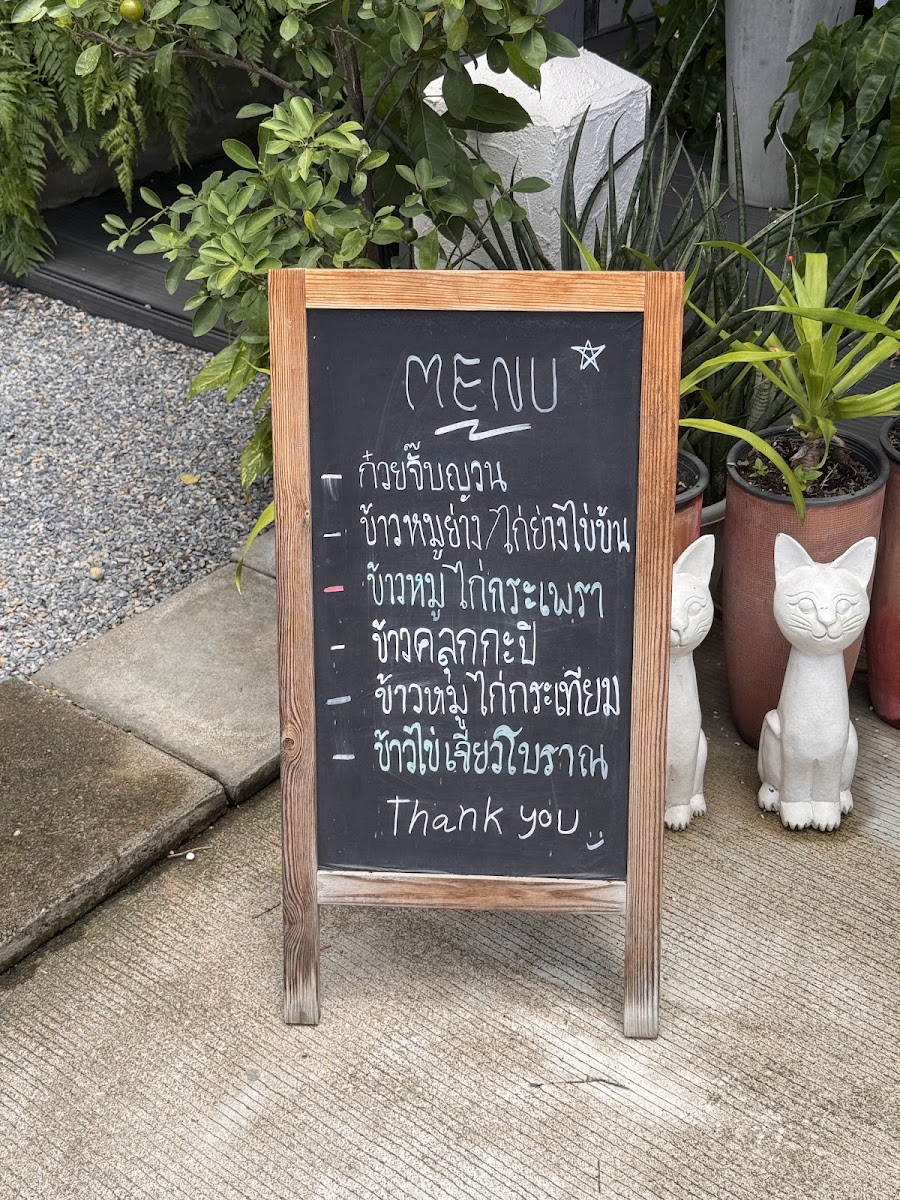 MENU
- ก๋วยจั๊บญวน
- ข้าวหมูย่าง/ไก่ย่างไข่ข้น
- ข้าวหมู ไก่กระเพรา
- ข้าวคลุกกะปิ
- ข้าวหมู ไก่กระเทียม
- ข้าวไข่เจียวโบราณ
Thank you